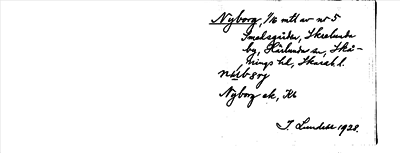 Nyborg, 1/16 mtl av nr 5
Smedsgården, Skerlunda
by, Härlunda sn, Skå-
nings hd, Skarab. l.
nübörj
Nyborg ek, Kb
J. Lundahl 1928.